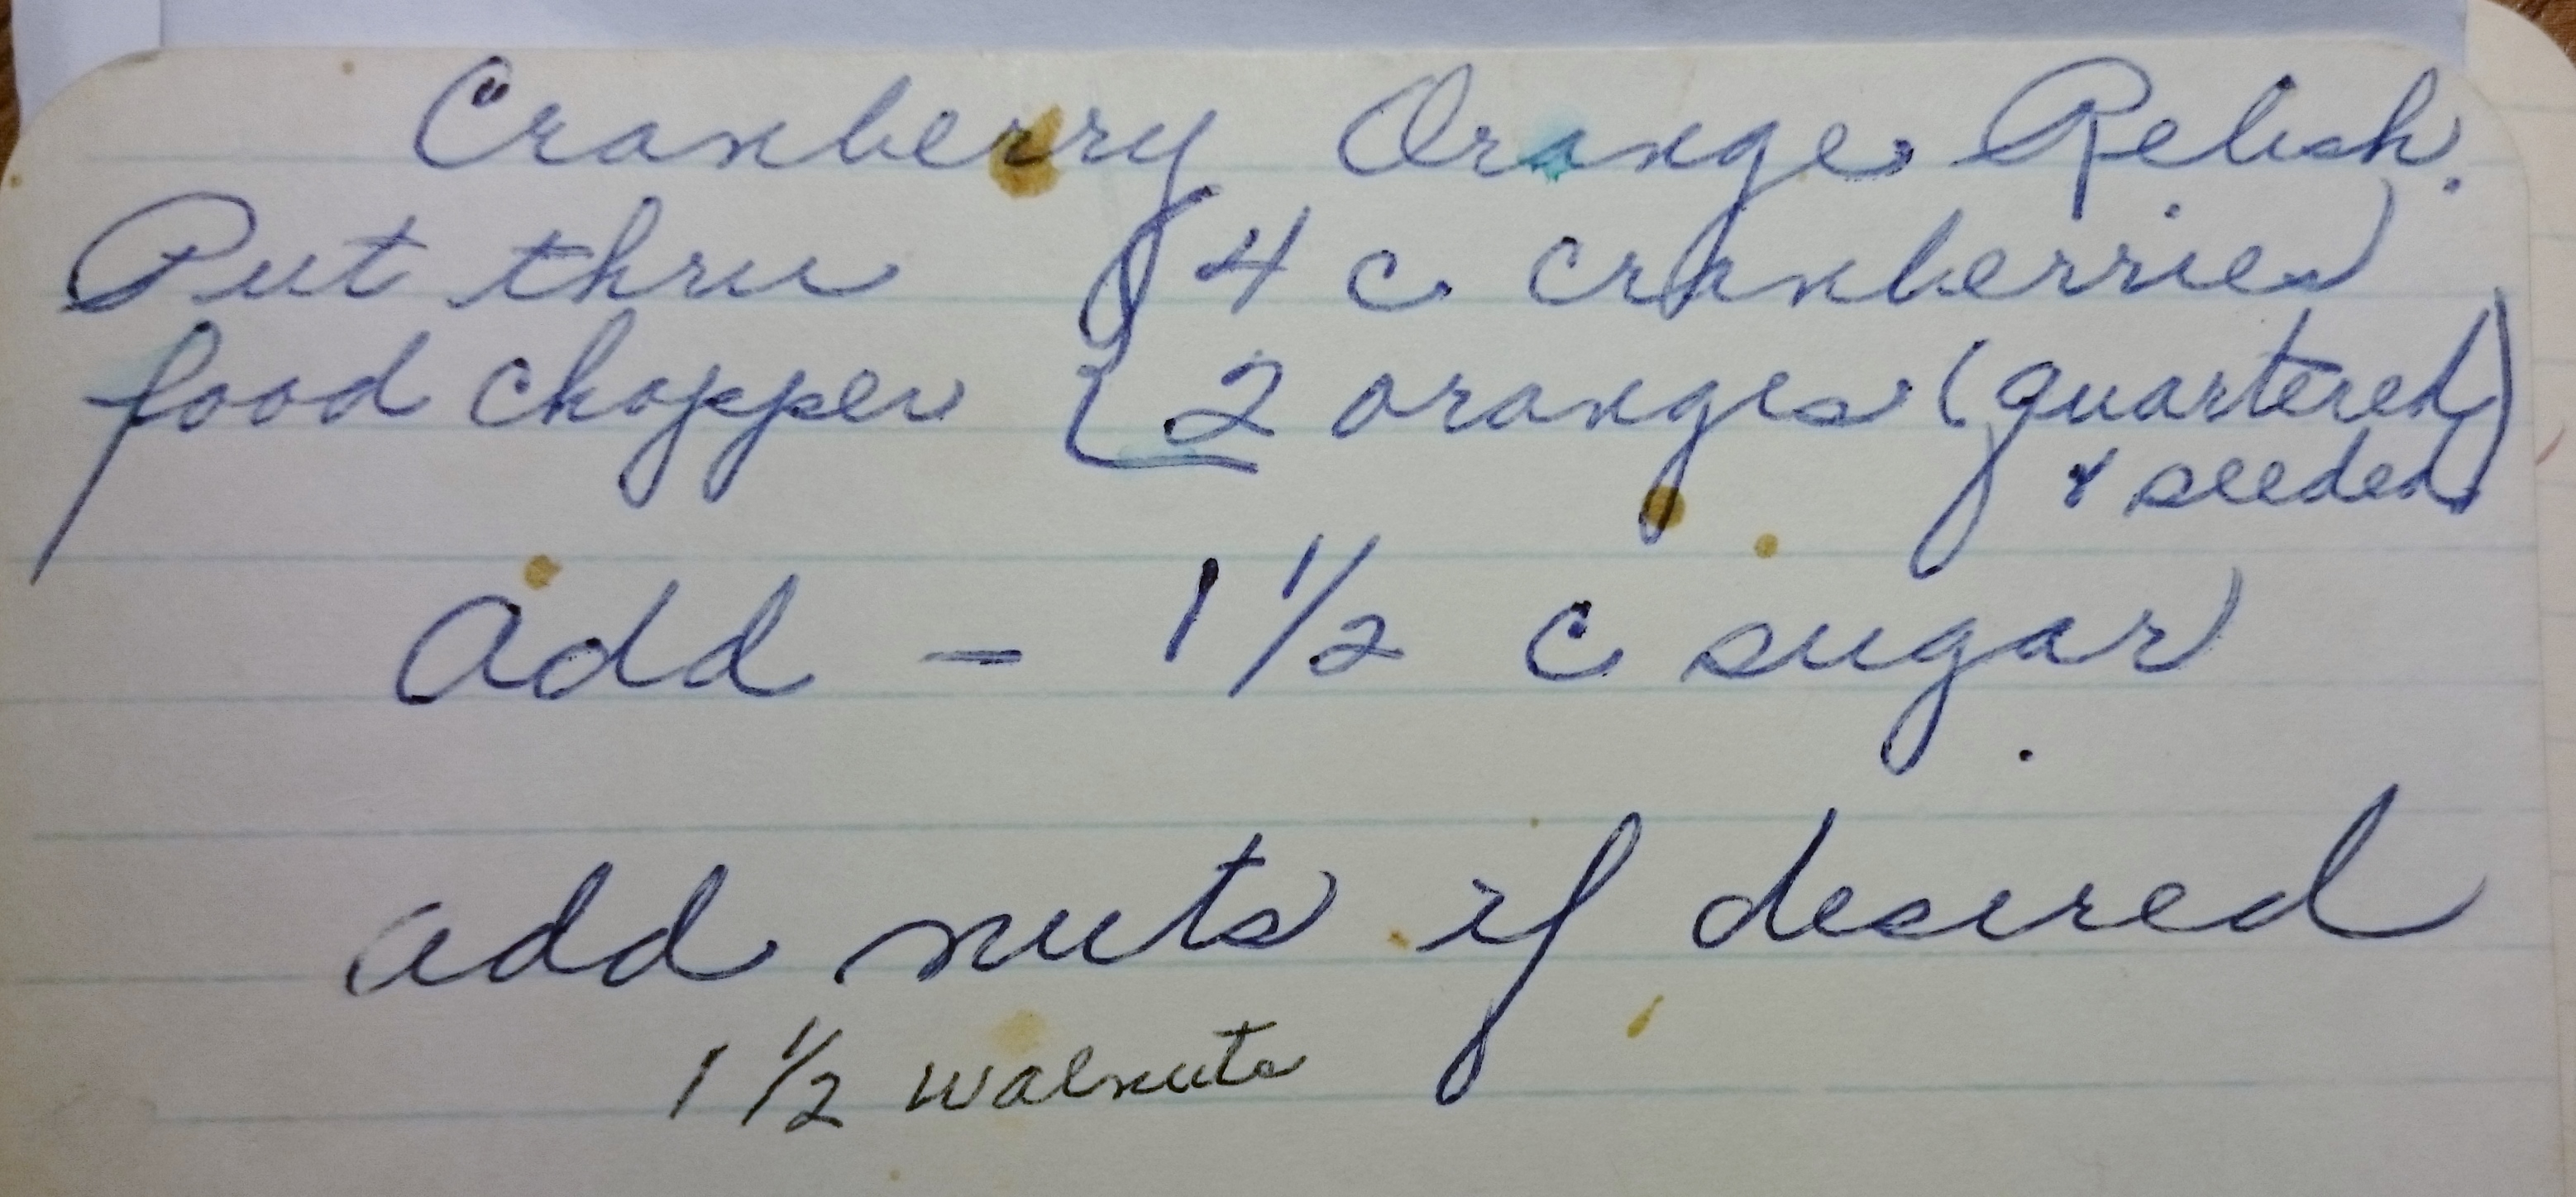 Cranberry Orange Relish.
Put thru { 4 c cranberries
food chopper { 2 oranges (quartered
& seeded)
add - 1 1/2 c sugar
add nuts if desired
1 1/2 walnuts